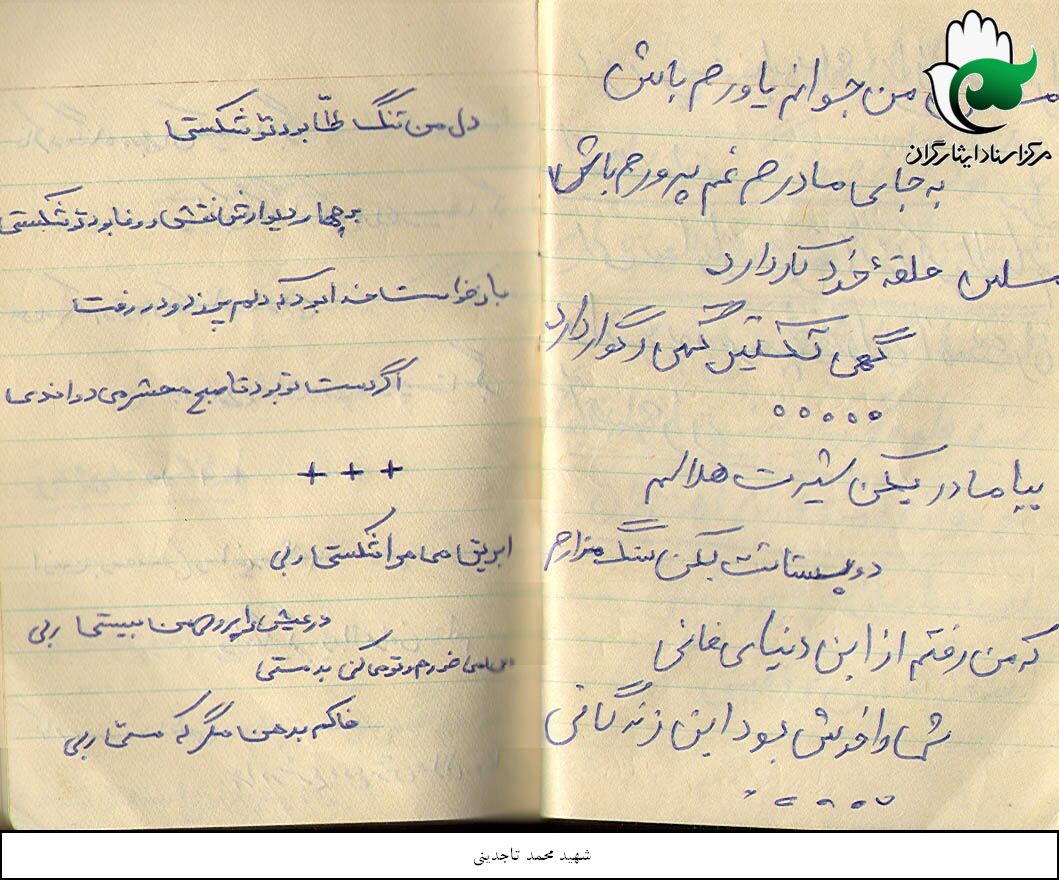 مرکز اسناد ایثارگران
من جوانم یاورم باش
به جای مادرم غم پرورم باش
حلقهٔ خُرد کار دارد
گهی تکتیر گهی رگوار دارد
○ ○ ○ ○ ○
بیا مادر بکن شیرت هلالم
دو پستانت بکن سنگ مزارم
که من رفتم از این دنیای فانی
شما را خوش بود این زندگانی
دل من تنگ طلّا بود تو شکستی
بر چهار دیوارش نقش و وفا بود تو شکستی
باز خواست خدا بود که دلم در رفت
اگر دست تو بود تا صبح محشر می دواندی
+ + +
ابریق می مرا شکستی ربی
در عیش را بروی من ببستی ربی
من می خورم و تو می کنی بد مستی
خاکم بدهن مگر که مستی ربی
شهید محمد تاجدینی